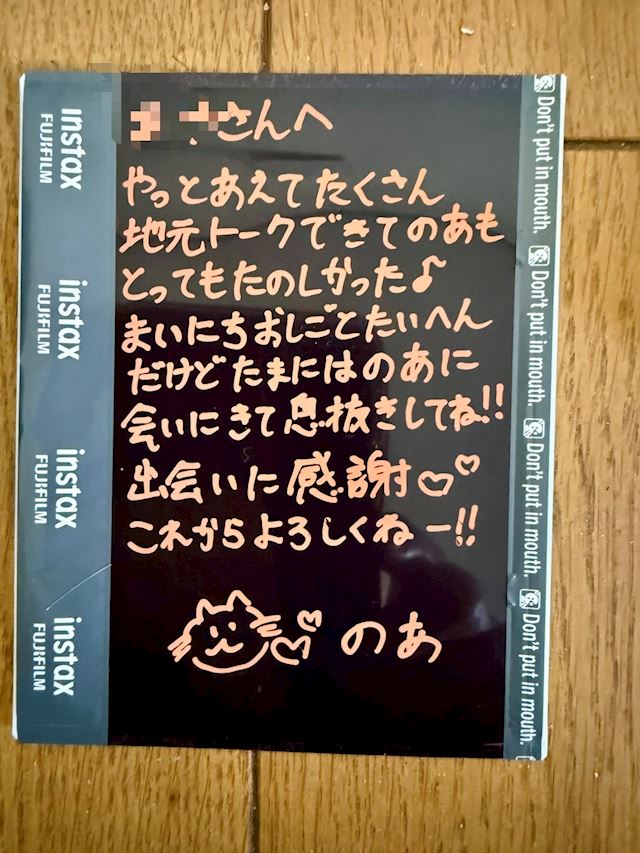 さんへ
やっとあえてたくさん
地元トークできてのあも
とってもたのしかった♪
まいにちおしごとたいへん
だけどたまにはのあに
会いにきて息抜きしてね!!
出会いに感謝♡♡
これからよろしくねー!!
のあ
instax
FUJIFILM
instax
FUJIFILM
instax
FUJIFILM
instax
FUJIFILM
Don't put in mouth.
Don't put in mouth.
Don't put in mouth.
Don't put in mouth.